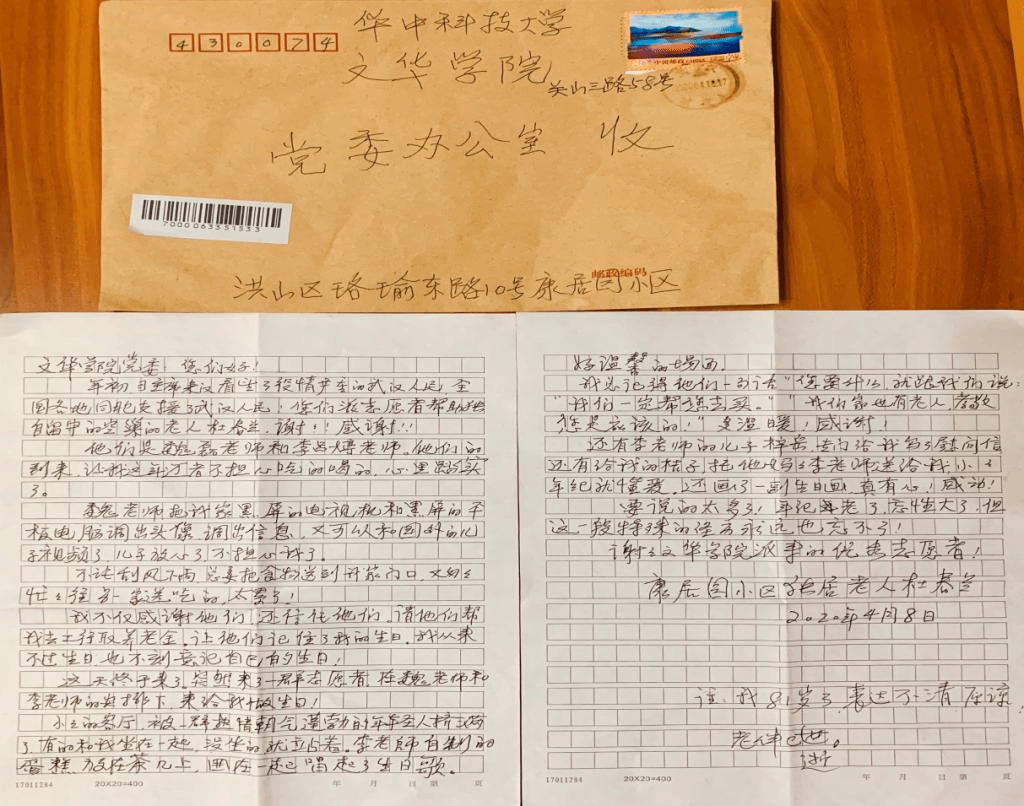 430074
华中科技大学
文华学院
关山三路58号
党委办公室 收
7000063351533
邮政编码
洪山区珞瑜东路10号康居园小区
文华学院党委 您们好!
年初自 来汉看望了疫情中的武汉人民,全
国各地同胞支援了武汉人民!您们派志愿者帮助独
自留守的空巢的老人杜春兰,谢谢!!感谢!!!
他们是魏磊老师和李昌 老师。他们的
到来,让我这年迈者不担心吃的喝的,心里踏实
了。
老师把我家黑屏的电视机和黑屏的平
板电脑调出头像,调出信息,又可以和国外的儿
子视频了,儿子放心了,不担心我了。
不论刮风下雨,总要把食物送到我家门口,又匆匆
忙忙往另一家送吃的,太累了!
我不仅感谢他们,还拜托他们,请他们帮
我去工行取养老金,让他们记住了我的生日。我从来
不过生日,也不刻意记自己的生日!
这一天终于来了,突然来了一群志愿者,在魏老师和
李老师的安排下,来给我做生日!
小小的客厅,被一群热情朝气蓬勃的年轻人挤满
了,有的和我坐在一起,没坐的就立站着。李老师自制的
蛋糕放在茶几上,围在一起唱起了生日歌。
17011284 20X20=400 年 月 日 第 页
好温馨的场面。
我总记得他们一句话“您要什么,就跟我们说:
“我们一定帮您去买。”“我们家也有老人,孝敬
您是应该的!”多温暖!感谢!
还有李老师的儿子梓 ,专门给我写了慰问信
还有给我的桔子,托他妈妈李老师送给我,小小
年纪就懂爱。还画了一副生日画,真有心!感动!
要说的太多了!年纪老了,忘性大了,但
这一段特殊的经历永远也忘不了!
谢谢文华学院派来的优秀志愿者!
康居园小区独居老人杜春兰
2020年4月8日
注:我81岁了,表达不清,原谅!
17011284 20X20=400 年 月 日 第 页